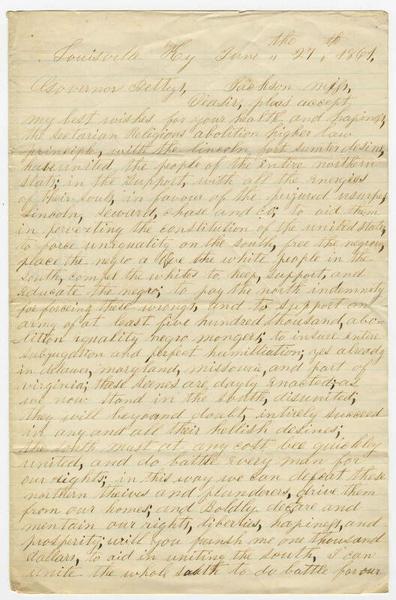 Louisvile Ky June the 27th, 1861,
Governor Pettys, Jackson Miss,
Deasir, pleas accept
my best wishes for your health, and hapines,
the sectarian Religious abolition higher law
principle, with the lincoln, fort sumter desine,
have united, the people of the entire northern
stats; in the support, with all the energies
of their souls, in favour of the perjured usurps,
Lincoln, Seward, Chase and Co; to aid them
in perverting the constitution of the united stats,
to force unequality on the south, free the negroes,
place the negro above the white people in the
South, compel the whites to keep, support, and
educate the negro; to pay the north indemnity
for forcing these wrongs, and to support an
army of at least five hundred thousand, abo-
lition equality negro mongers; to insure entire
subjugation and perfect humiliation; yes already
in delawer, maryland, missourie, and part of
virginia; these scenes are dayly enacted; as
we now stand in the south, disunited;
they will beyound doubt, intirely succeed
in any and all their hellish desines;
the south must at any cost bee quickly
united, and do battle every man for
our rights; in this way we can defeat these
northern theives and plunderers, drive them
from our homes, and boldly declare and
mentain our rights, liberties, hapiness, and
prosperity; will you furnish me one thousand
dollars, to aid in uniting the south, i can
unite the whole south to do battle favour